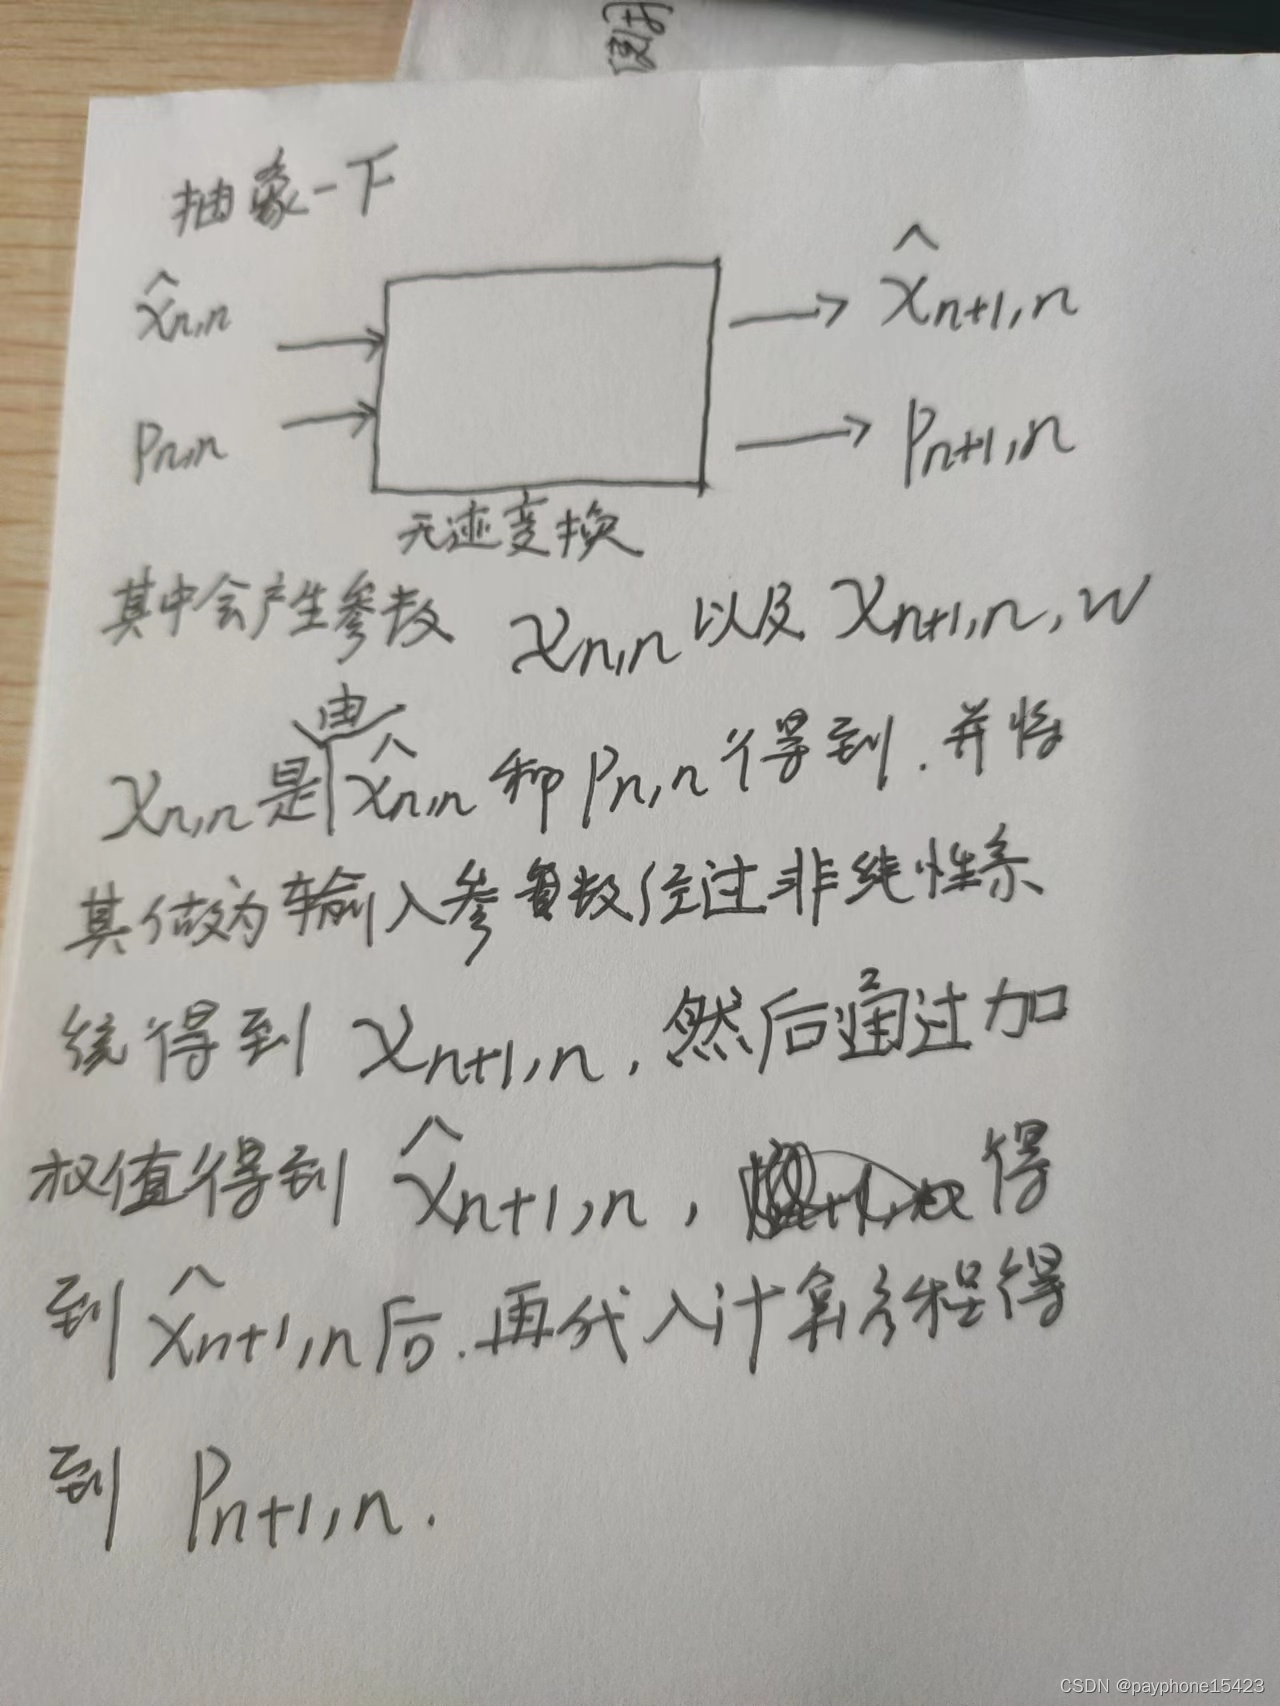 抽象一下
x̂n,n → → x̂n+1,n
Pn,n → → Pn+1,n
无迹变换
其中会产生参数 Xn,n 以及 Xn+1,n, w
由
Xn,n 是 x̂n,n 和 Pn,n 得到. 并将
其做为输入参数经过非线性系
统得到 Xn+1,n, 然后通过加
权值得到 x̂n+1,n, 得
到 x̂n+1,n 后. 再代入计算方程得
到 Pn+1,n.
CSDN @payphone15423